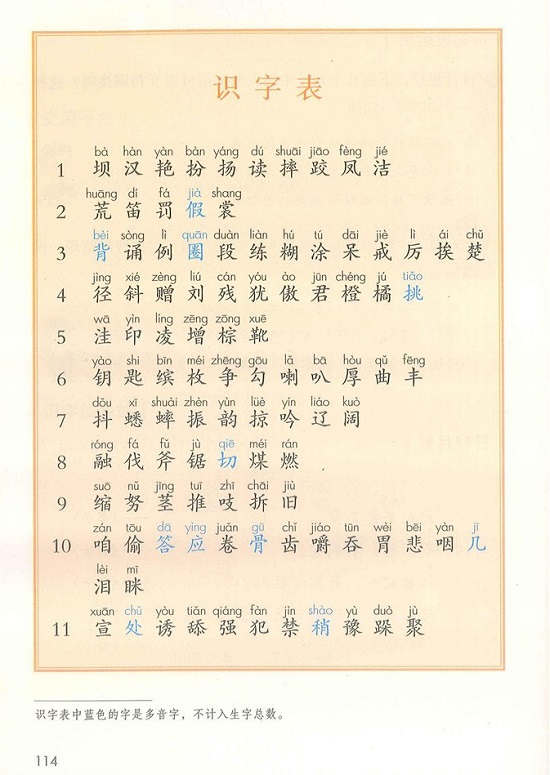 识字表
bà hàn yàn bàn yáng dú shuāi jiāo fèng jié
1 坝 汉 艳 扮 扬 读 摔 跤 凤 洁
huāng dí fá jià shang
2 荒 笛 罚 假 裳
bèi sòng lì quān duàn liàn hú tú dāi jiè lì ái chǔ
3 背 诵 例 圈 段 练 糊 涂 呆 戒 厉 挨 楚
jìng xié zèng liú cán yóu ào jūn chéng jú tiāo
4 径 斜 赠 刘 残 犹 傲 君 橙 橘 挑
wā yìn líng zēng zōng xuē
5 洼 印 凌 增 棕 靴
yào shi bīn méi zhēng gōu lǎ bā hòu qǔ fēng
6 钥 匙 缤 枚 争 勾 喇 叭 厚 曲 丰
dǒu xī shuài zhèn yùn lüè yín liáo kuò
7 抖 蟋 蟀 振 韵 掠 吟 辽 阔
róng fá fǔ jù qiē méi rán
8 融 伐 斧 锯 切 煤 燃
suō nǔ jīng tuī zhī chāi jiù
9 缩 努 茎 推 吱 拆 旧
zán tōu dā yìng juǎn gǔ chǐ jiáo tūn wèi bēi yàn jī
10 咱 偷 答 应 卷 骨 齿 嚼 吞 胃 悲 咽 几
lèi mī
泪 眯
xuān chǔ yòu tiǎn qiáng fàn jìn shào yù duò jù
11 宣 处 诱 舔 强 犯 禁 稍 豫 跺 聚
识字表中蓝色的字是多音字，不计入生字总数。
114